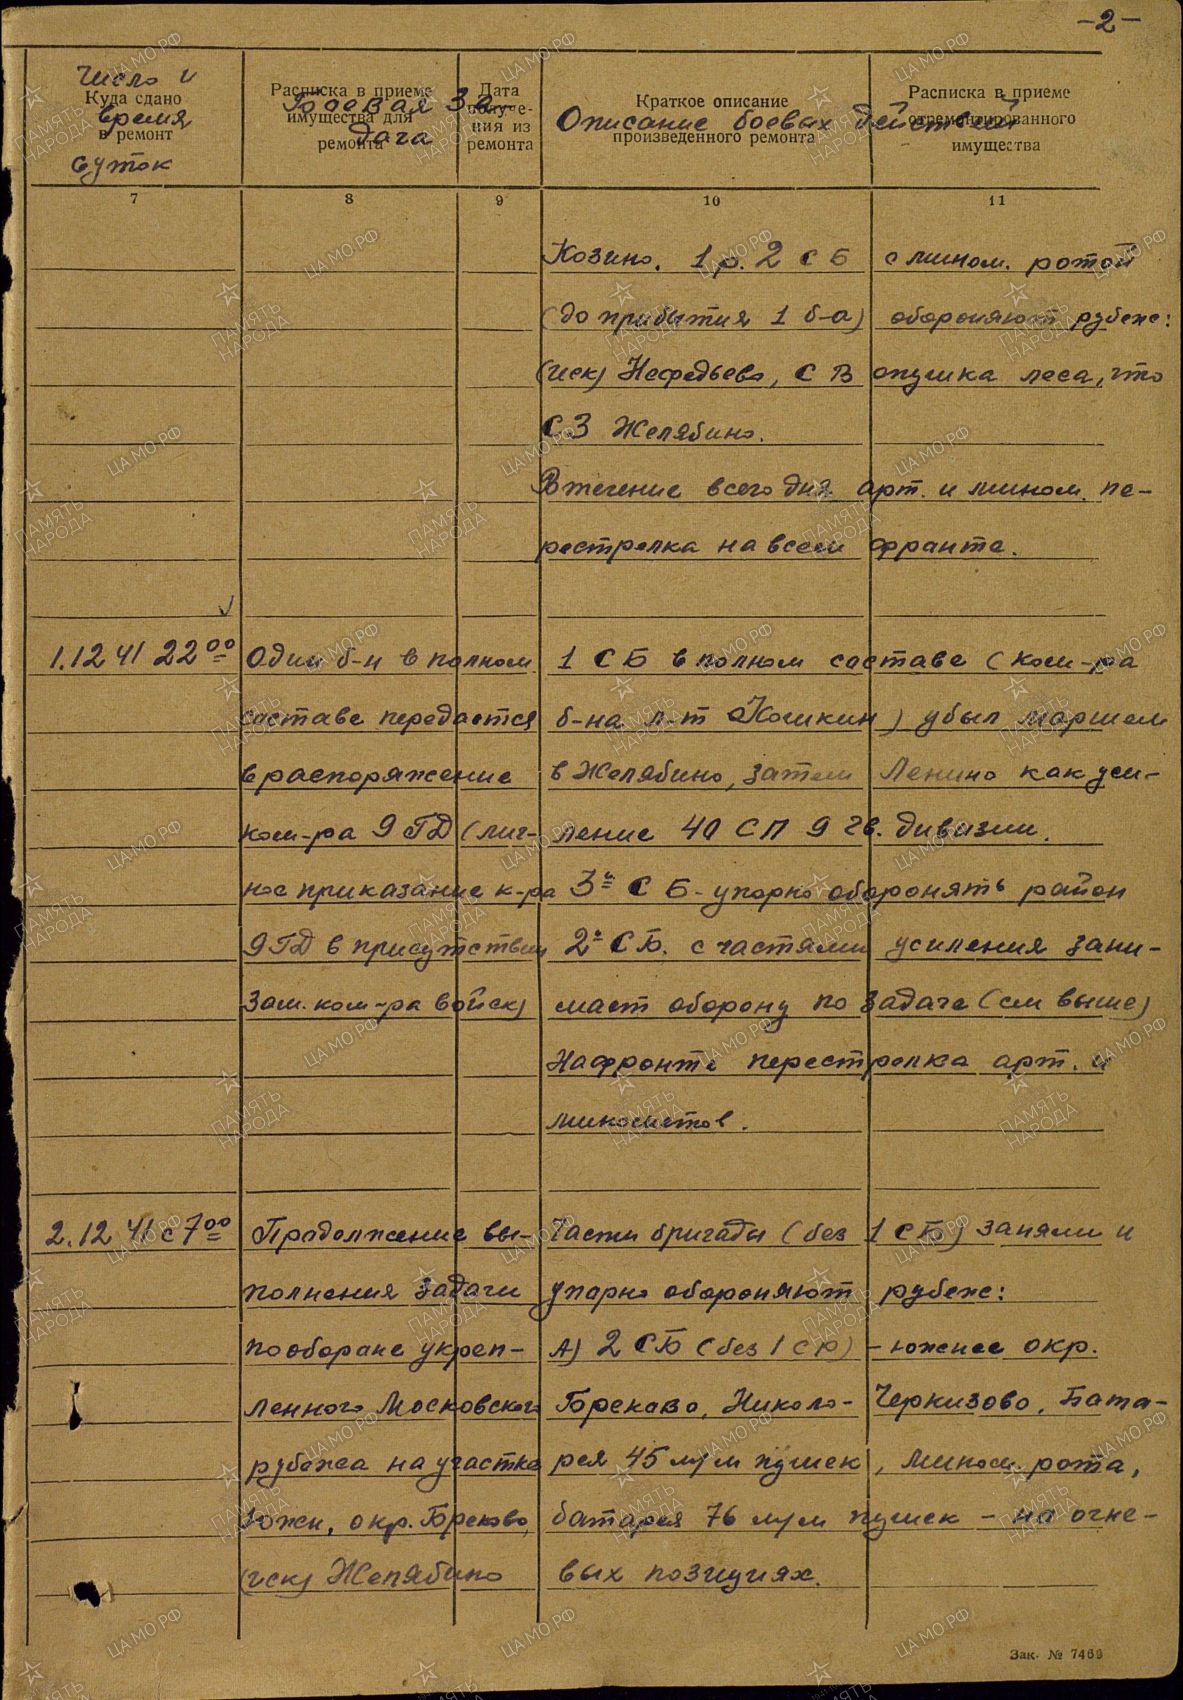 -2-
Число и
время
суток
Куда сдано
в ремонт
Боевая за-
дача
Расписка в приеме
имущества для
ремонта
Дата
получе-
ния из
ремонта
Описание боевых действий
Краткое описание
произведенного ремонта
Расписка в приеме
отремонтированного
имущества
7 8 9 10 11
Козино. 1 р. 2 СБ с мином. ротой
(до прибытия 1 б-а) обороняют рубеж:
(иск) Нефедьево, СВ опушка леса, что
СЗ Желябино.
В течение всего дня арт. и мином. пе-
рестрелка на всем фронте.
1.12 41 22 00
Один б-н в полном
составе передается
в распоряжение
ком-ра 9 ГД (лич-
ное приказание к-ра
9 ГД в присутствии
зам. ком-ра войск)
1 СБ в полном составе (ком-ра
б-на л-т Кошкин) убыл маршем
в Желябино, затем Ленино как уси-
ление 40 СП 9 гв. дивизии.
3й СБ - упорно оборонять район
2й СБ. с частями усиления зани-
мает оборону по задаче (см выше)
На фронте перестрелка арт. и
минометов.
2.12 41 с 7 00
Продолжение вы-
полнения задачи
по обороне укреп-
ленного Московского
рубежа на участке
южн. окр. Брехово,
(иск) Желябино
Части бригады (без 1 СБ) заняли и
упорно обороняют рубеж:
А) 2 СБ (без 1 ср) - южнее окр.
Брехово, Николо- Черкизово, Бата-
рея 45 м/м пушек, мином. рота,
батарея 76 м/м пушек - на огне-
вых позициях.
Зак. № 7469
ЦАМО.РФ
ПАМЯТЬ
НАРОДА